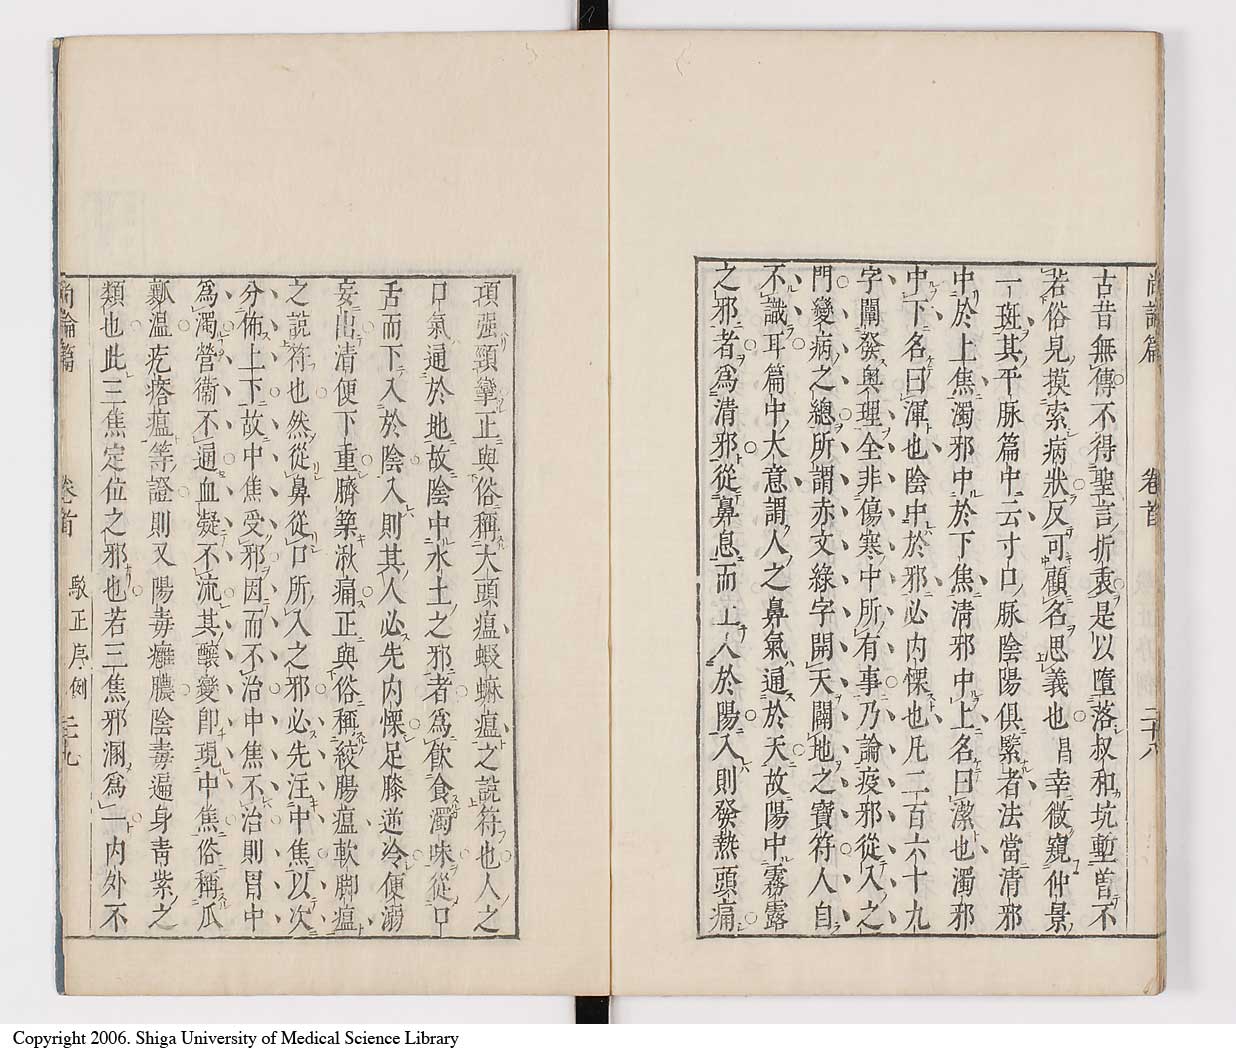 尚論篇 卷首 二十八
古昔無傳不得聖言折衷是以墮落叔和坑塹曾不
若俗見摸索病狀反可顧名思義也昌幸微窺仲景
一斑其平脉篇中云寸口脉陰陽俱緊者法當清邪
中於上焦濁邪中於下焦清邪中上名曰潔也濁邪
中下名曰渾也陰中於邪必内慄也凡二百六十九
字闡發奥理全非傷寒中所有事乃論疫邪從入之
門變病之總所謂赤文綠字開天闢地之寶符人自
不識耳篇中大意謂人之鼻氣通於天故陽中霧露
之邪者爲清邪從鼻息而上入於陽入則發熱頭痛
項强頸攣正與俗稱大頭瘟蝦蟆瘟之說符也人之
口氣通於地故陰中水土之邪者爲飮食濁味從口
舌而下入於陰入則其人必先内慄足膝逆冷便溺
妄出清便下重臍築湫痛正與俗稱絞腸瘟軟脚瘟
之說符也然從鼻從口所入之邪必先注中焦以次
分佈上下故中焦受邪因而不治中焦不治則胃中
爲濁營衞不通血凝不流其釀變卽現中焦俗稱瓜
瓤瘟疙瘩瘟等證則又陽毒癰膿陰毒遍身青紫之
類也此三焦定位之邪也若三焦邪溷爲一内外不
尚論篇 卷首 駁正序例 二十九
Copyright 2006. Shiga University of Medical Science Library